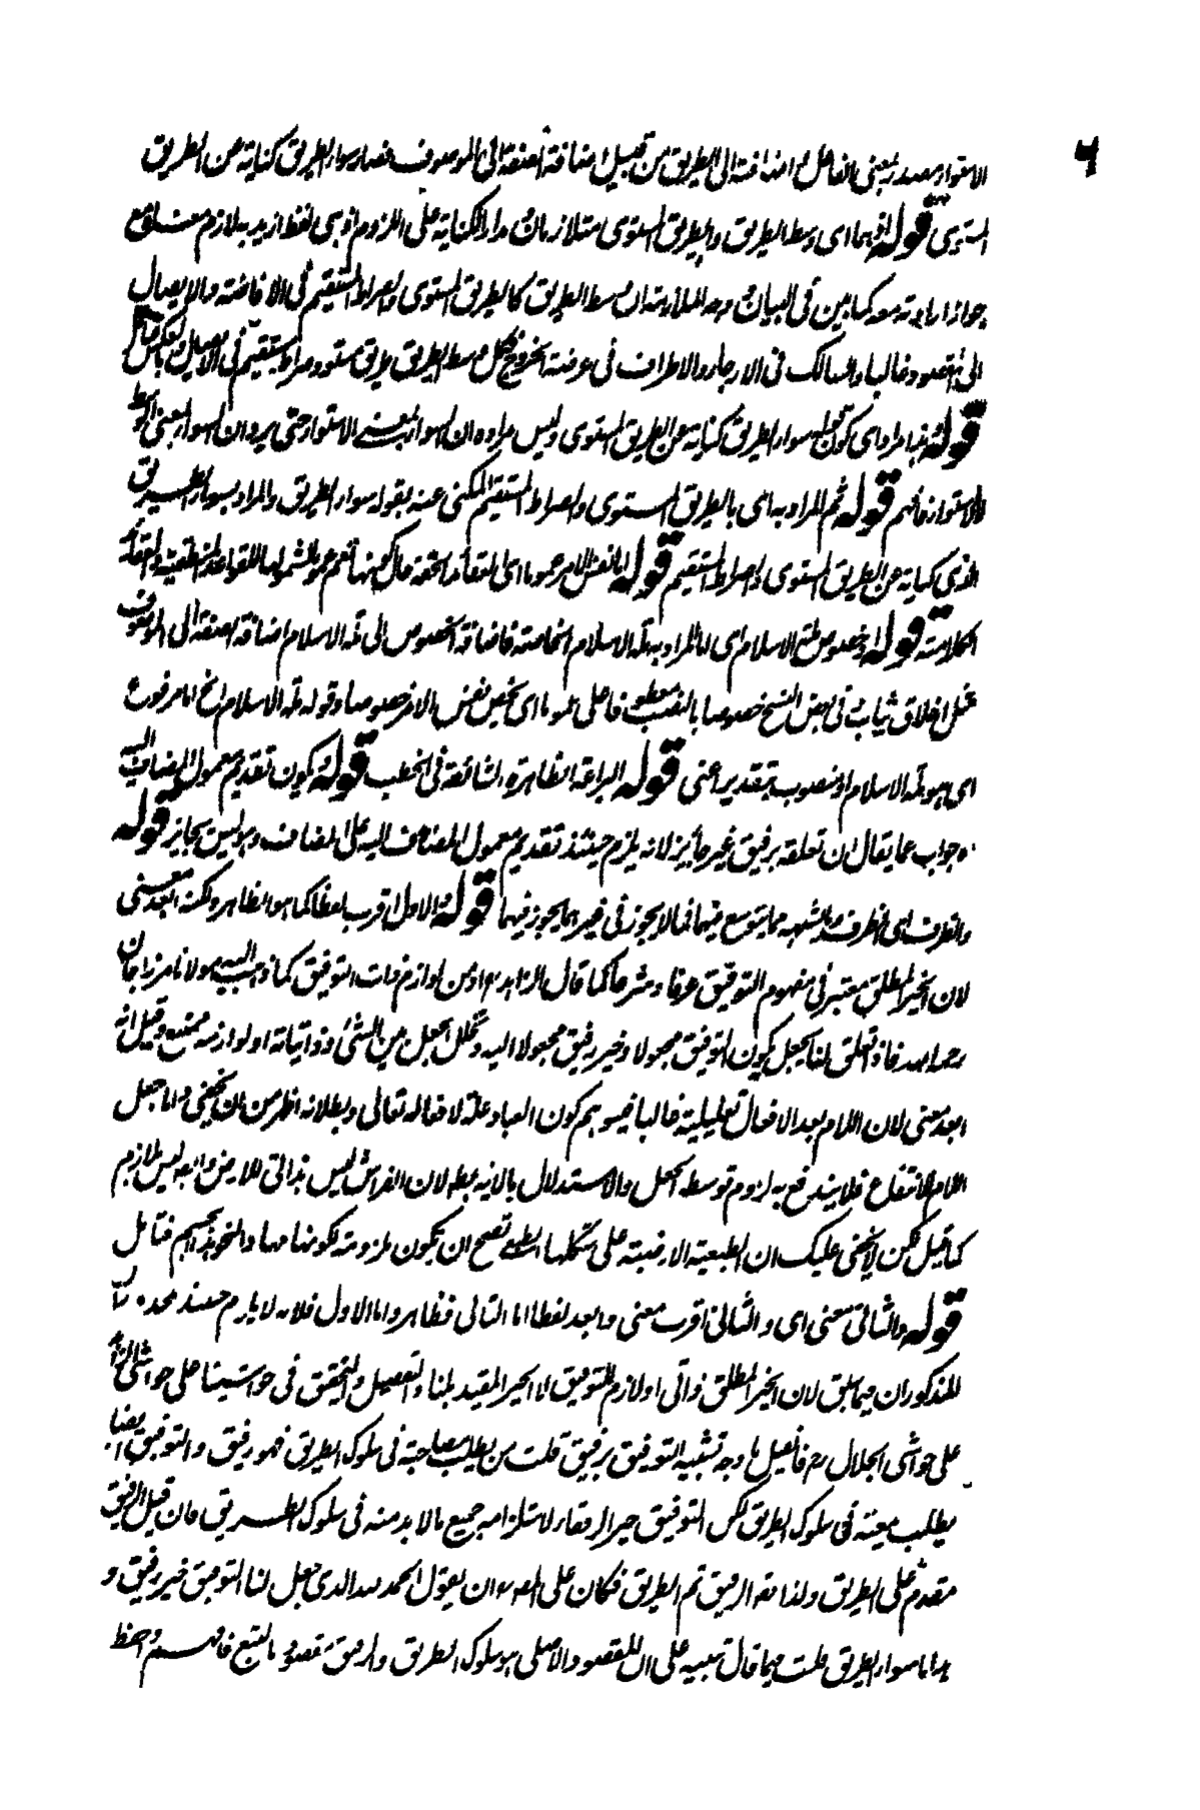 ۴
الاستواء مصدر بمعنى الفاعل و اضافته الى الطريق من قبيل اضافة الصفة الى الموصوف فصار سواء الطريق كناية عن الطريق
المستوى قوله اى وسط الطريق والطريق المستوى متلازمان مدار الكناية على اللزوم لفظ اريد به لازم معناه مع
جواز ارادته معه كما بين فى البيان وجه الملازمة ان وسط الطريق كالطريق المستوى والصراط المستقيم فى الافاضة والايصال
الى المقصود غالبا والسالك فى الارجاء والاطراف فى عرضة الخروج فكل وسط الطريق طريق مستو وصراط مستقيم فى الايصال وبالعكس
قوله هذا مراده اى كون سواء الطريق كناية عن الطريق المستوى وليس مراده ان السواء بمعنى الاستواء حتى يرد ان السواء بمعنى الوسط
لا الاستواء فافهم قوله ثم المراد به اى بالطريق المستوى والصراط المستقيم المكنى عنه بقوله سواء الطريق والمراد بسواء الطريق
الذى كناية عن الطريق المستوى والصراط المستقيم قوله اما نفس الامر عموما اى العقائد الحقة حال كونها اعم لشمولها للقواعد المنطقية والعقائد
الكلامية قوله او خصوص ملة الاسلام اى المراد به ملة الاسلام الخاصة فاضافة الخصوص الى ملة الاسلام اضافة الصفة الى الموصوف
مثل اخلاق ثياب فى بعض النسخ خصوصا بالنصب عطفا على عموما اى يخص نفس الامر خصوصا وقوله ملة الاسلام الخ اما مرفوع
اى هو ملة الاسلام او منصوب بتقدير اعنى قوله البراعة الظاهرة الشائعة فى الخطب قوله كون تقديم معمول المضاف اليه
جواب عما يقال ان تعلقه برفيق غير جائز لانه يلزم حينئذ تقديم معمول المضاف اليه على المضاف وهو ليس بجائز قوله
والظرف اى الظرف وشبهه مما يتوسع فيهما فما لا يجوز فى غيرهما يجوز فيهما قوله والاول اقرب لفظا كما هو الظاهر ولكنه ابعد معنى
لان الخير المطلق معتبر فى مفهوم التوفيق عرفا وشرعا كما قال الزاهد او من لوازم ذات التوفيق كما ذهب اليه مولانا مرزا جان
رحمه الله فاذ تعلق لنا بجعل يكون التوفيق مجعولا وخير رفيق مجعولا اليه وتخلل الجعل بين الشئ وذاتياته او لوازمه ممتنع وقيل انه
ابعد معنى لان اللام بعد الافعال تعليلية غالبا فيوهم كون العباد علة لافعاله تعالى وبطلانه اظهر من ان يخفى واما جعل
اللام للانتفاع فلا يندفع به لزوم توسط الجعل والاستدلال بالآية باطل لان الفراش ليس بذاتى للارض وانه ليس بلازم
كما قيل لكن لا يخفى عليك ان الطبيعة الارضية على شكلها تصح ان تكون ملزومة لكونها مهادا فتأمل
قوله والثانى معنى اى والثانى اقرب معنى وابعد لفظا اما الثانى فظاهر واما الاول فلانه لا يلزم حينئذ
المذكوران فيما سبق لان الخير المطلق ذاتى او لازم للتوفيق لا الخير المقيد بلنا والتفصيل والتحقيق فى حواشينا على حواشى الزاهد
على حواشى الجلال فان قيل ما وجه تشبيه التوفيق برفيق قلت من يطلب مصاحبته فى سلوك الطريق فهو رفيق والتوفيق ايضا
يطلب معيته فى سلوك الطريق لكن التوفيق خير الرفقاء لاستلزامه جميع ما لابد منه فى سلوك الطريق فان قيل الرفيق
مقدم على الطريق ولذا الرفيق ثم الطريق فكان على ان يقول الحمد لله الذى جعل لنا التوفيق خير رفيق و
هدانا سواء الطريق قلت فيما قال تنبيه على ان المقصود الاصلى هو سلوك الطريق والرفيق مقصود بالتبع فافهم واحفظ